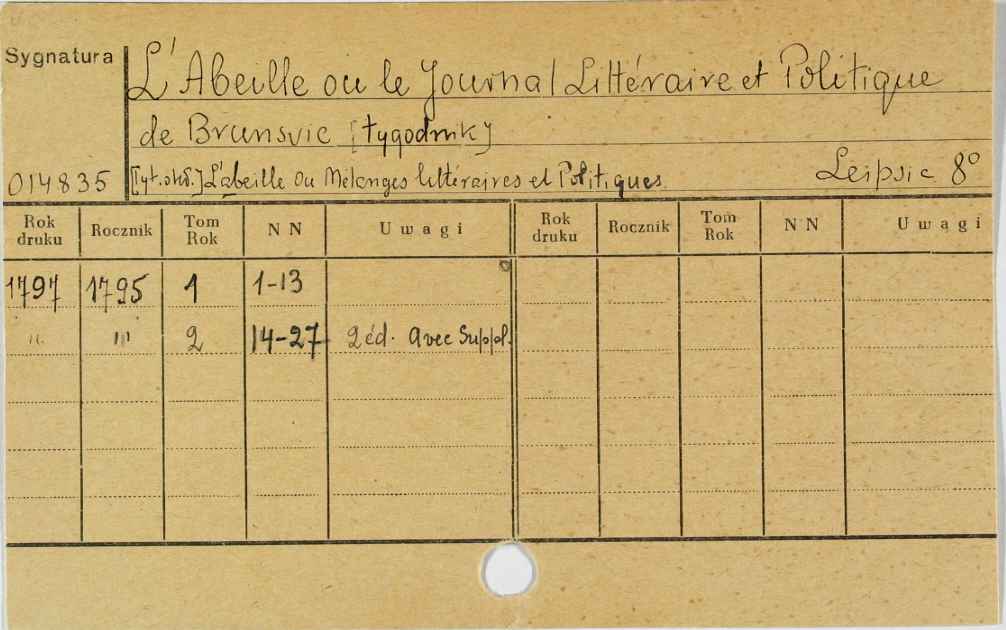 Sygnatura
L'Abeille ou le Journal Littéraire et Politique
de Brunsvic [tygodnik]
014835 [Tyt. okł.] L'abeille ou Mélanges littéraires et Politiques Leipsic 8°
Rok druku Rocznik Tom Rok NN Uwagi Rok druku Rocznik Tom Rok NN Uwagi
1797 1795 1 1-13
" " 2 14-27 2 éd. avec Suppl.